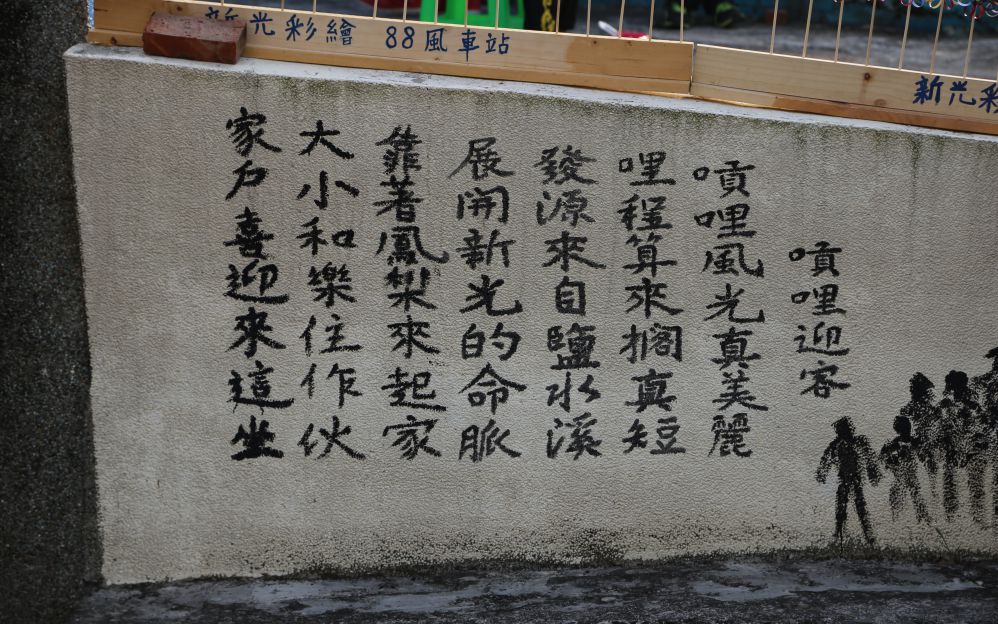 新光彩繪 88風車站
新光彩
嗊哩迎客
嗊哩風光真美麗
哩程算來擱真短
發源來自鹽水溪
展開新光的命脈
靠著鳳梨來起家
大小和樂住作伙
家戶喜迎來這坐